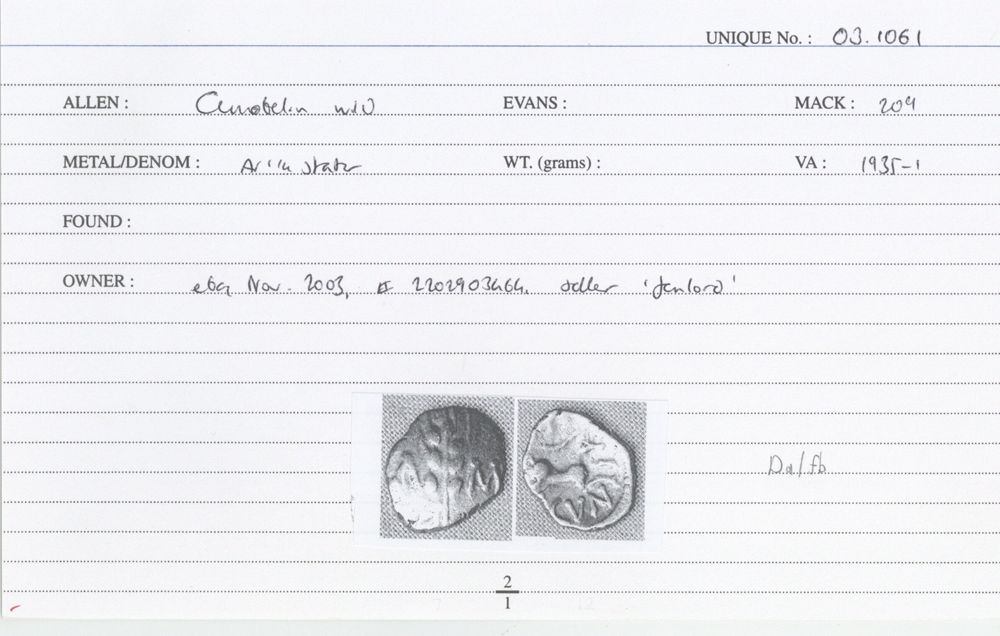 UNIQUE No. : 03.1061
ALLEN : Cunobelin EVANS : MACK : 209
METAL/DENOM : AV 1/4 stater WT. (grams) : VA : 1935-1
FOUND :
OWNER : ebay Nov. 2003, # 2202903464. seller 'jenlord'
M
CVN
Da/fb
2
1